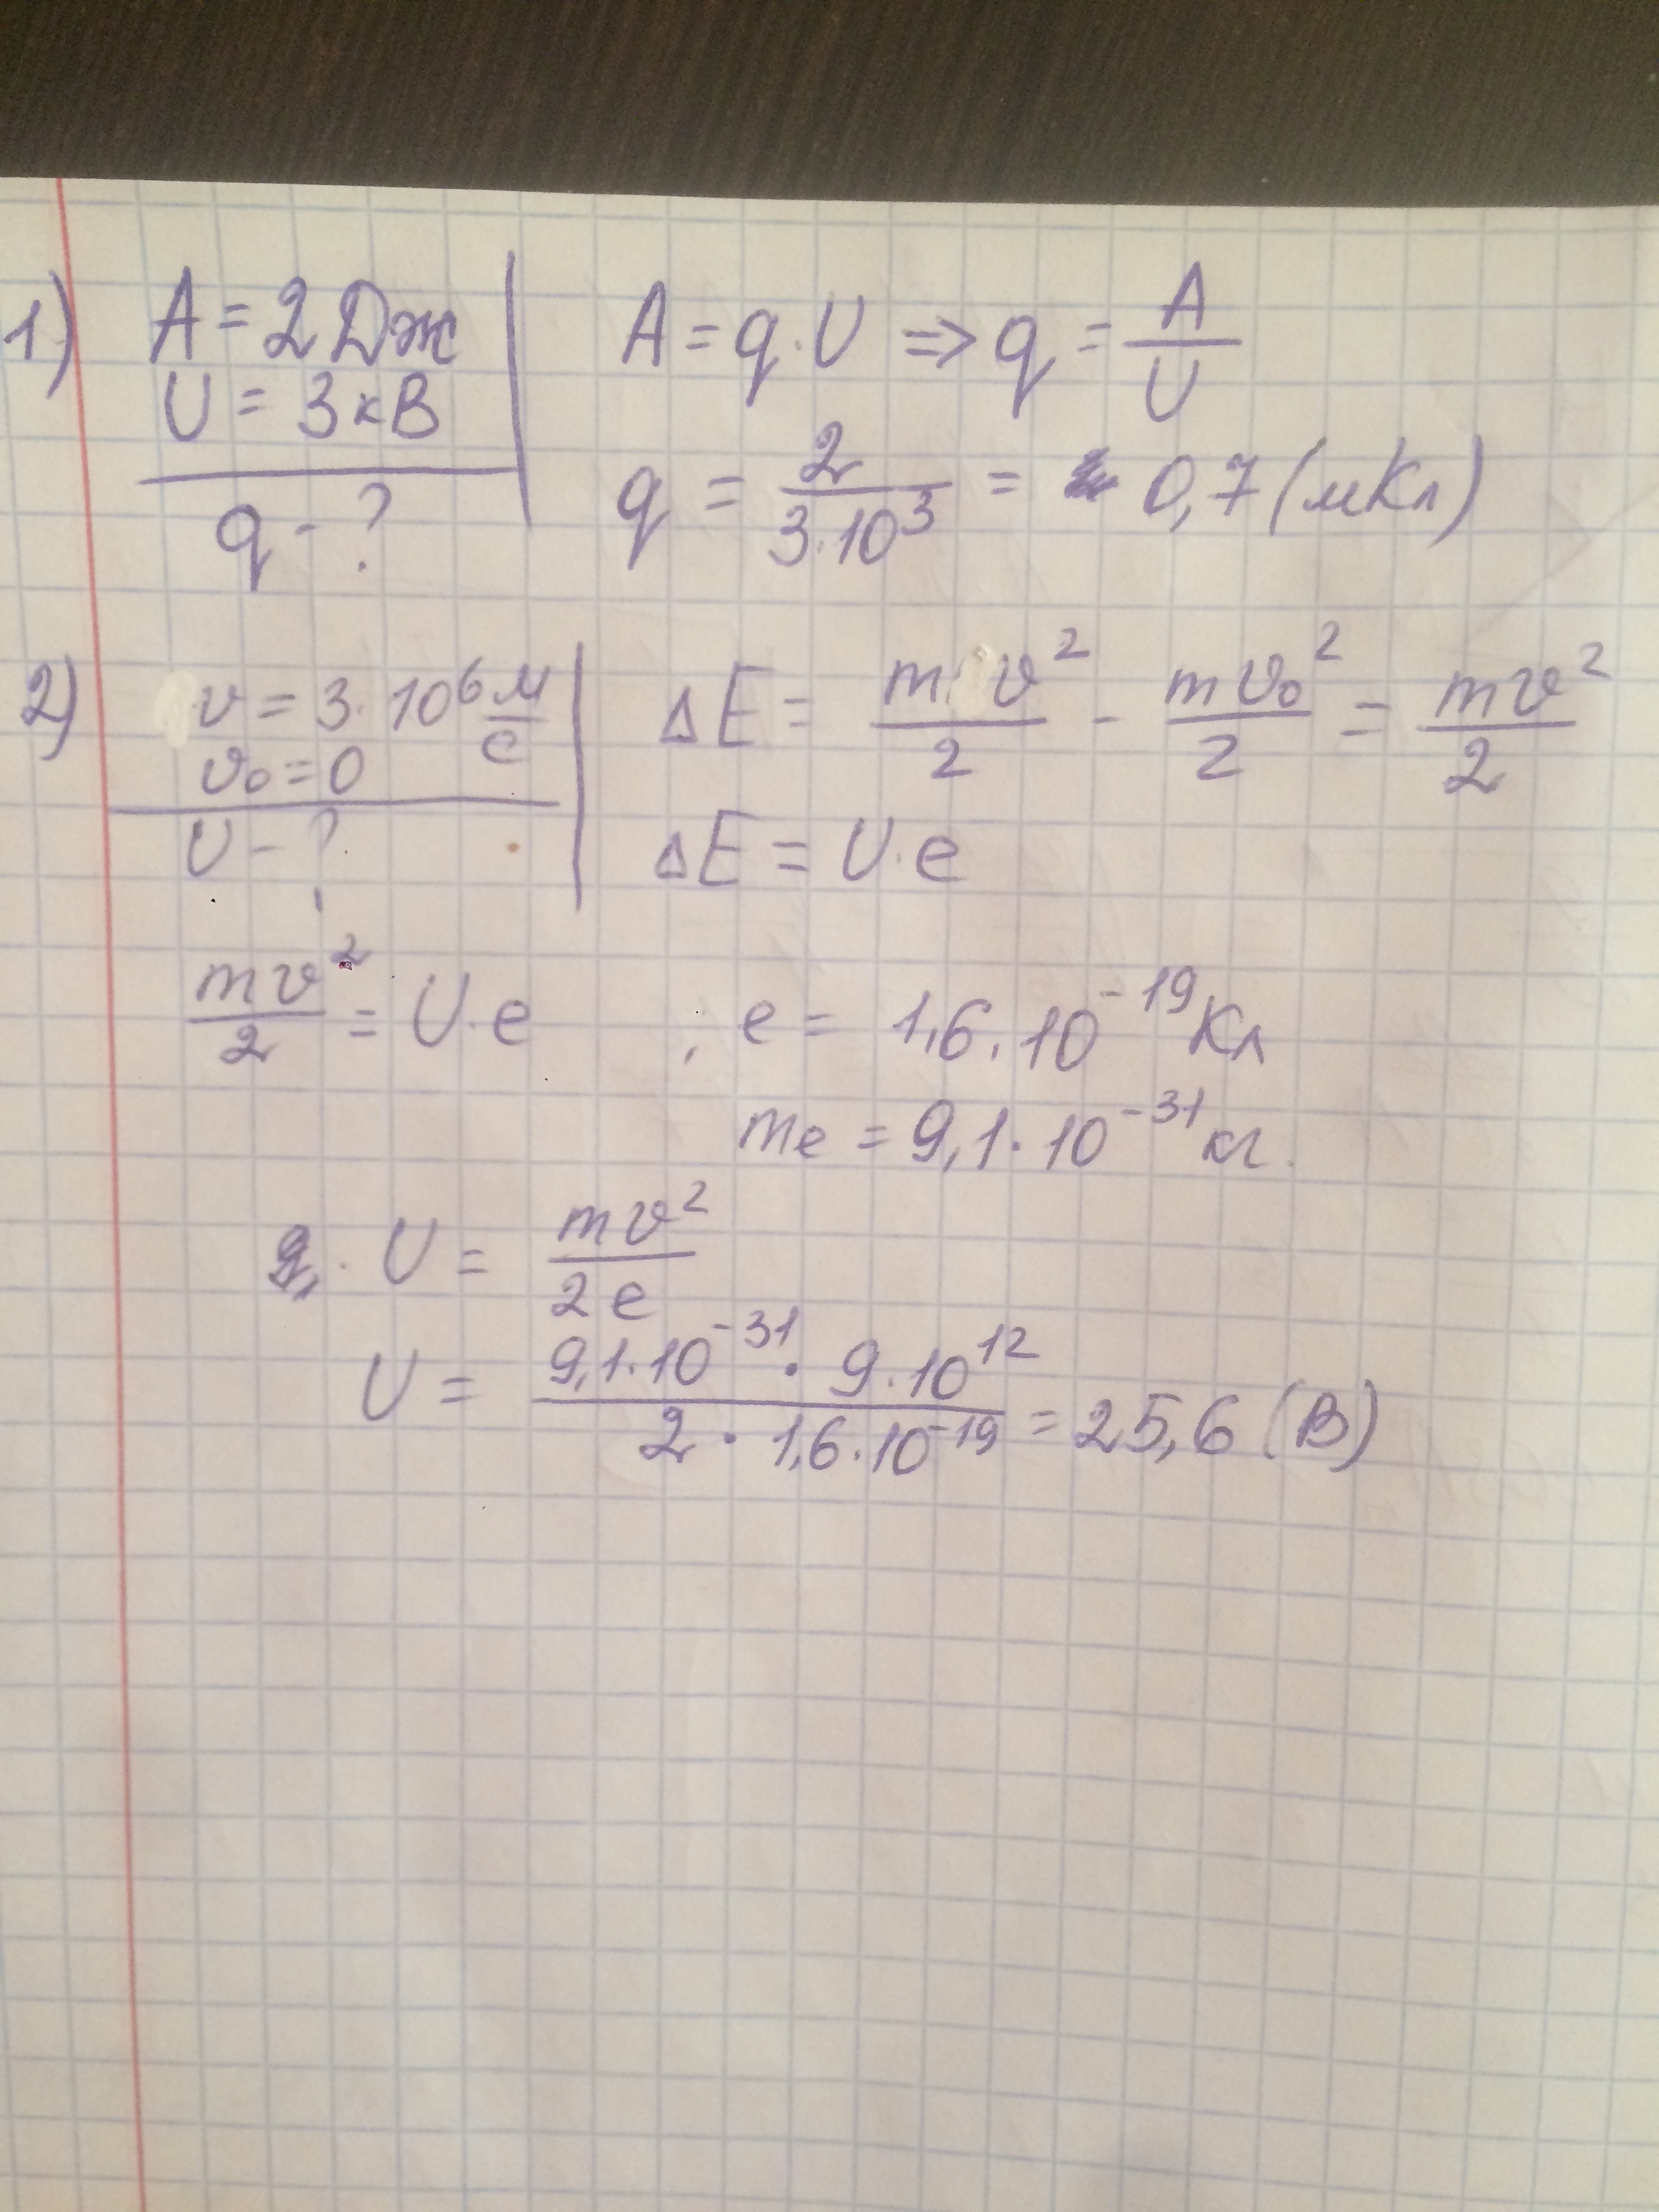 1) A = 2 Дж
U = 3 кВ
q - ?
A = q · U ⇒ q = A/U
q = 2/(3·10³) = 0,7 (мКл)
2) v = 3 · 10⁶ м/с
v₀ = 0
U - ?
ΔE = mv²/2 - mv₀²/2 = mv²/2
ΔE = U · e
mv²/2 = U · e ; e = 1,6 · 10⁻¹⁹ Кл
mₑ = 9,1 · 10⁻³¹ кг.
U = mv²/2e
U = (9,1 · 10⁻³¹ · 9 · 10¹²)/(2 · 1,6 · 10⁻¹⁹) = 25,6 (В)